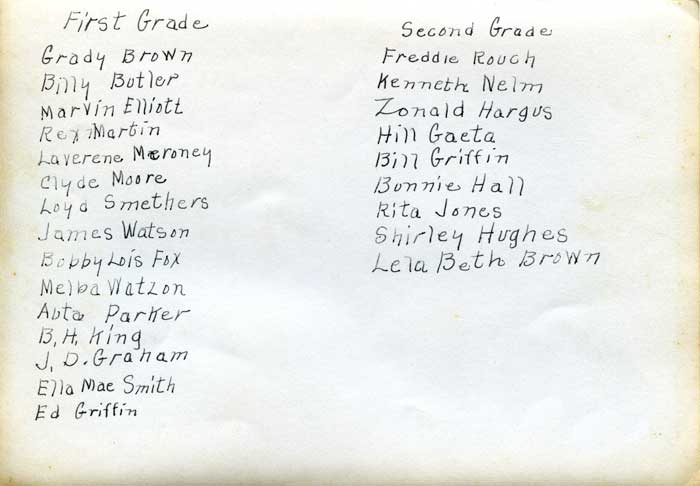 First Grade
Grady Brown
Billy Butler
Marvin Elliott
Rex Martin
Laverene Meroney
Clyde Moore
Loyd Smethers
James Watson
Bobby Lois Fox
Melba Watzon
Auta Parker
B. H. King
J. D. Graham
Ella Mae Smith
Ed Griffin
Second Grade
Freddie Rouch
Kenneth Nelm
Zonald Hargus
Hill Gaeta
Bill Griffin
Bonnie Hall
Rita Jones
Shirley Hughes
Lela Beth Brown